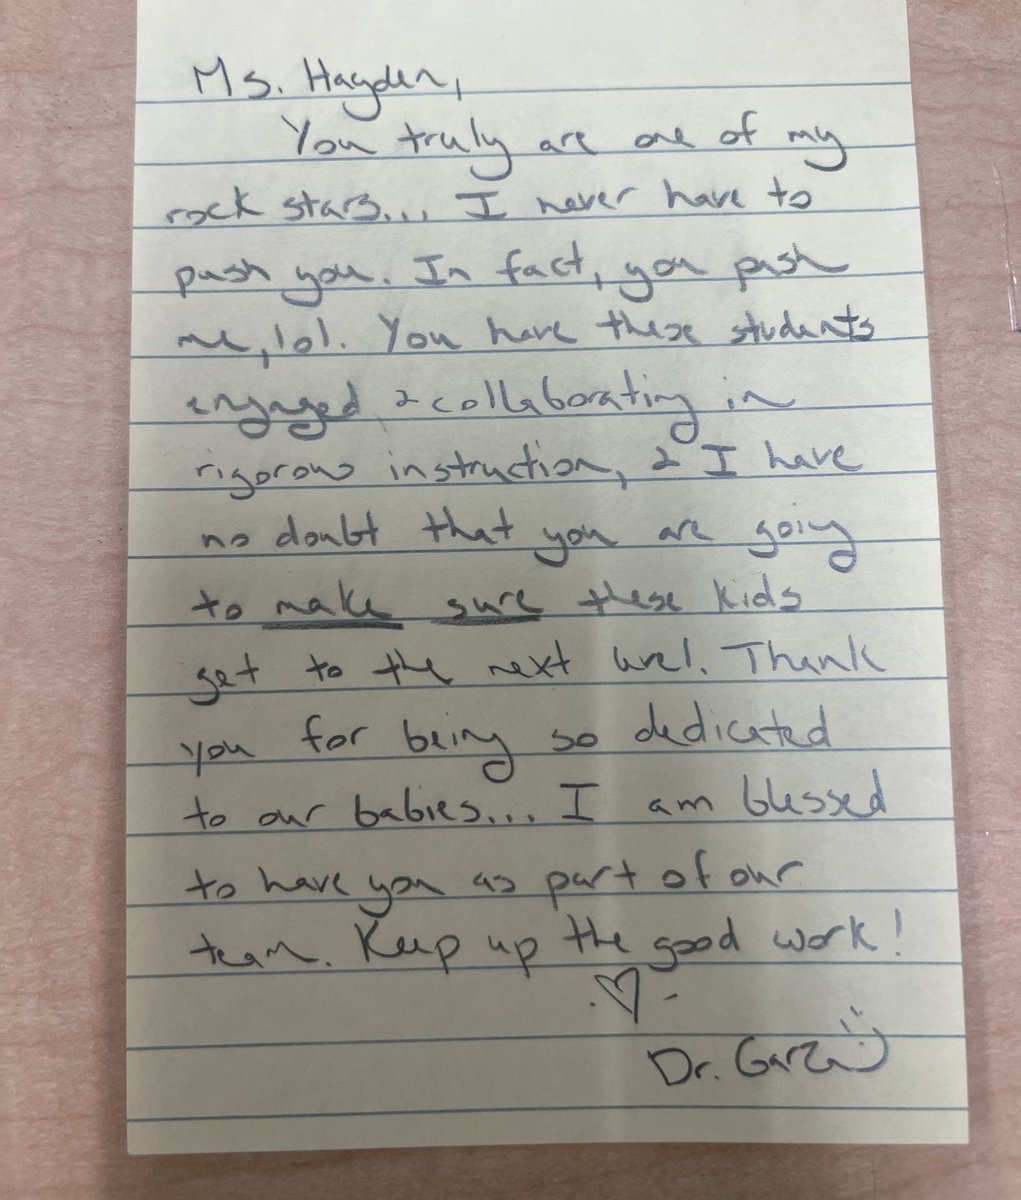 Ms. Hayden,
You truly are one of my
rock stars... I never have to
push you. In fact, you push
me, lol. You have these students
engaged & collaborating in
rigorous instruction, & I have
no doubt that you are going
to make sure these kids
get to the next level. Thank
you for being so dedicated
to our babies... I am blessed
to have you as part of our
team. Keep up the good work!
Dr. Garza